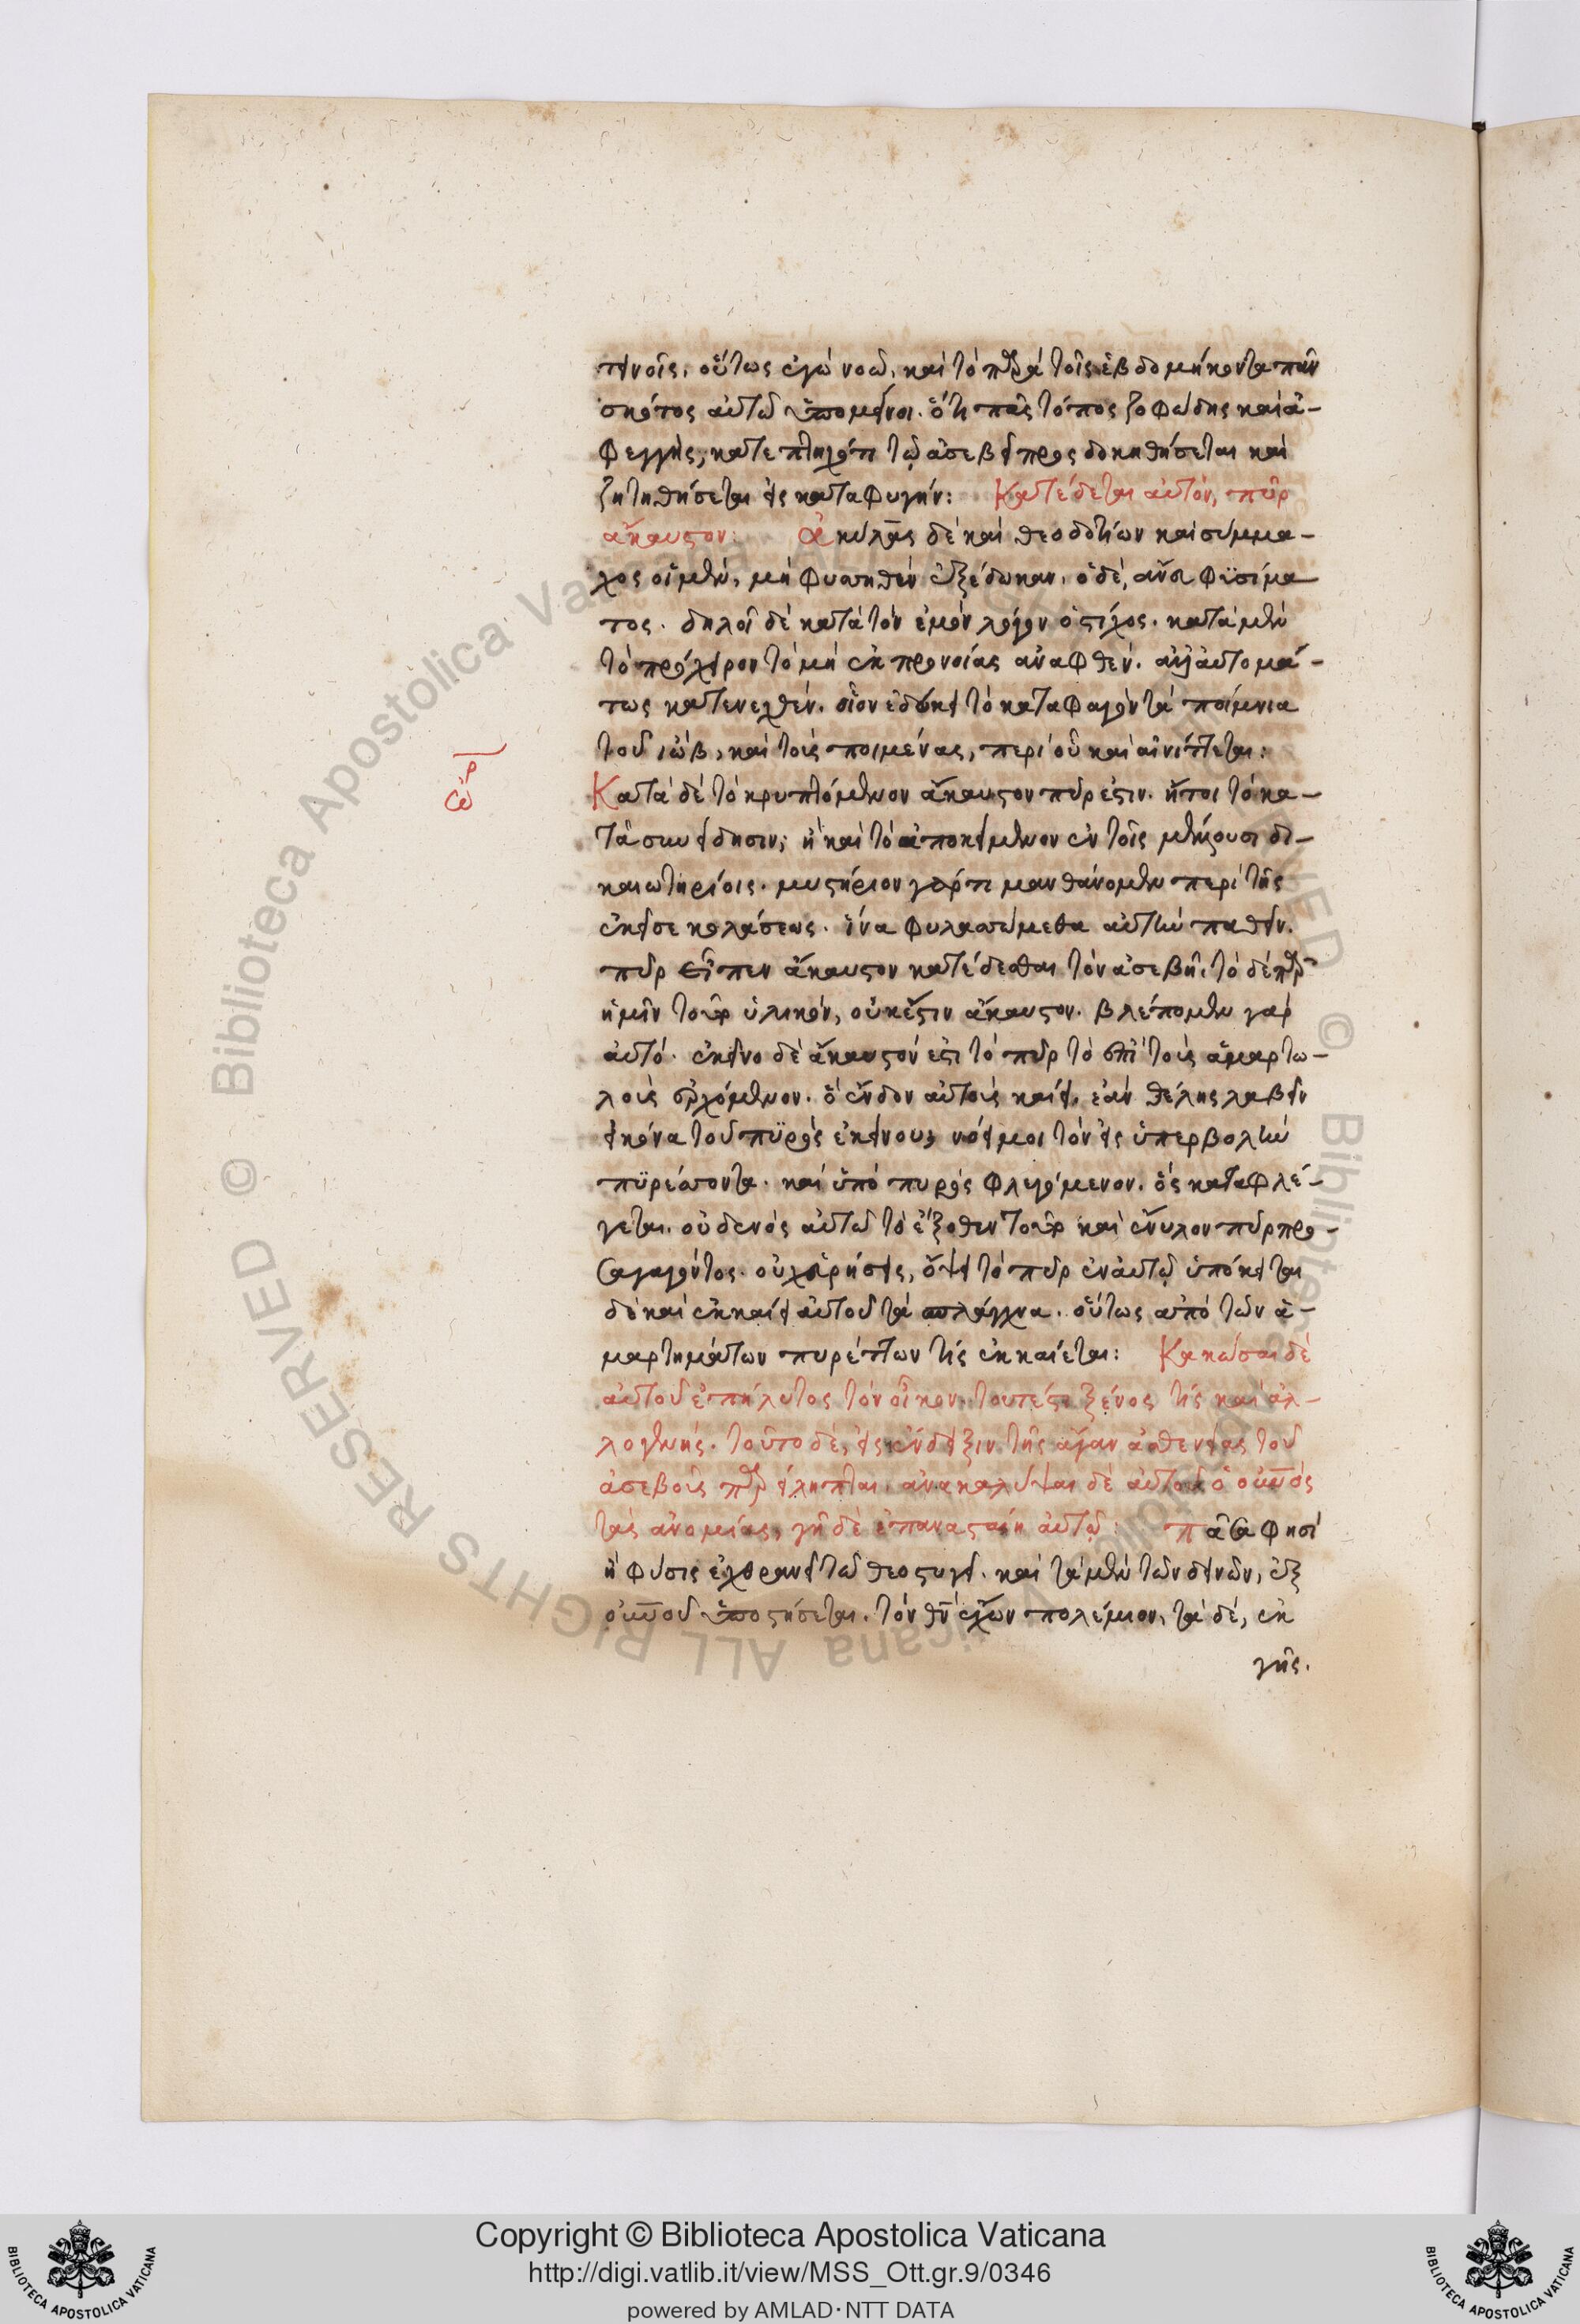 πεινοῖς, οὕτως ἐγὼ νοῶ, καὶ τὸ παρὰ τοῖς ἑβδομήκοντα πᾶν
σκότος αὐτῷ ὑπομείνοι. ὅτι πᾶς τόπος ζοφώδης καὶ ἀ-
φεγγὴς, κατεπτηχότι τῷ ἀσεβεῖ προσδοκηθήσεται καὶ
ζητηθήσεται εἰς καταφυγήν: Κατέδεται αὐτὸν, πῦρ
ἄκαυστον: ἀκύλας δὲ καὶ θεοδοτίων καὶ σύμμα-
χος οἱ μὲν, μὴ φυσηθὲν ἐξέδωκαν. ὁ δὲ, ἄνευ φυσήμα
τος. δηλοῖ δὲ κατὰ τὸν ἐμὸν λόγον ὁ στίχος. κατὰ μὲν
τὸ πρόχειρον τὸ μὴ ἐκ προνοίας ἀναφθέν. ἀλλ' αὐτομά-
τως κατενεχθέν. οἷον ἐδόκει τὸ καταφαγὸν τὰ ποίμνια
τοῦ ἰὼβ, καὶ τοὺς ποιμένας, περὶ οὗ καὶ αἰνίττεται:
Κατὰ δὲ τὸ κρυπτόμενον ἄκαυστον πῦρ ἐστιν. ἤτοι τὸ κα-
τὰ συνείδησιν, ἢ καὶ τὸ ἀποκείμενον ἐν τοῖς μένουσι δι-
καιωτηρίοις. μυστήριον γάρ τι μανθάνομεν περὶ τῆς
ἐκεῖσε κολάσεως. ἵνα φυλασσώμεθα αὐτὴν παθεῖν.
πῦρ εἶπεν ἄκαυστον κατέδεσθαι τὸν ἀσεβῆ, τὸ δὲ παρ'
ἡμῖν τοῦτο ὑλικὸν, οὐκ ἔστιν ἄκαυστον. βλέπομεν γὰρ
αὐτό. ἐκεῖνο δὲ ἄκαυστόν ἐστι τὸ πῦρ τὸ ἐπὶ τοὺς ἁμαρτω-
λοὺς ἐρχόμενον. ὃ ἔνδον αὐτοὺς καίει, ἐὰν θέλῃς λαβεῖν
εἰκόνα τοῦ πυρὸς ἐκείνου, νόει μοι τὸν εἰς ὑπερβολὴν
πυρέσσοντα. καὶ ὑπὸ πυρὸς φλεγόμενον. ὃς καταφλέ-
γεται. οὐδενὸς αὐτῷ τὸ ἔξοθεν τοῦτο καὶ ἔνυλον πῦρ προ-
σαγαγόντος. οὐχ εὑρήσεις, ὅτι τὸ πῦρ ἐν αὐτῷ ὑπόκειται
δὸ καὶ ἐκκαίει αὐτοῦ τὰ σπλάγχνα. οὕτως ἀπὸ τῶν ἁ-
μαρτημάτων πυρέττων τίς ἐκκαίεται: Κακώσαι δὲ
αὐτοῦ ἐπήλυτος τὸν οἶκον. τουτέστι ξένος τίς καὶ ἀλ-
λογενής. τοῦτο δὲ, εἰς ἔνδειξιν τῆς ἄγαν ἀσθενείας τοῦ
ἀσεβοῦς παρείληπται. ἀνακαλύψαι δὲ αὐτοῦ ὁ οὐνὸς
τὰς ἀνομίας, γῆ δὲ ἐπανασταίη αὐτῷ: πᾶσα φησὶ
ἡ φύσις ἐχθρανεῖ τῷ θεοστυγεῖ. καὶ τὰ μὲν τῶν δεινῶν, ἐξ
οὐνοῦ ὑποστήσεται. τὸν θν ἔχων πολέμιον, τὰ δὲ, ἐκ
γῆς.